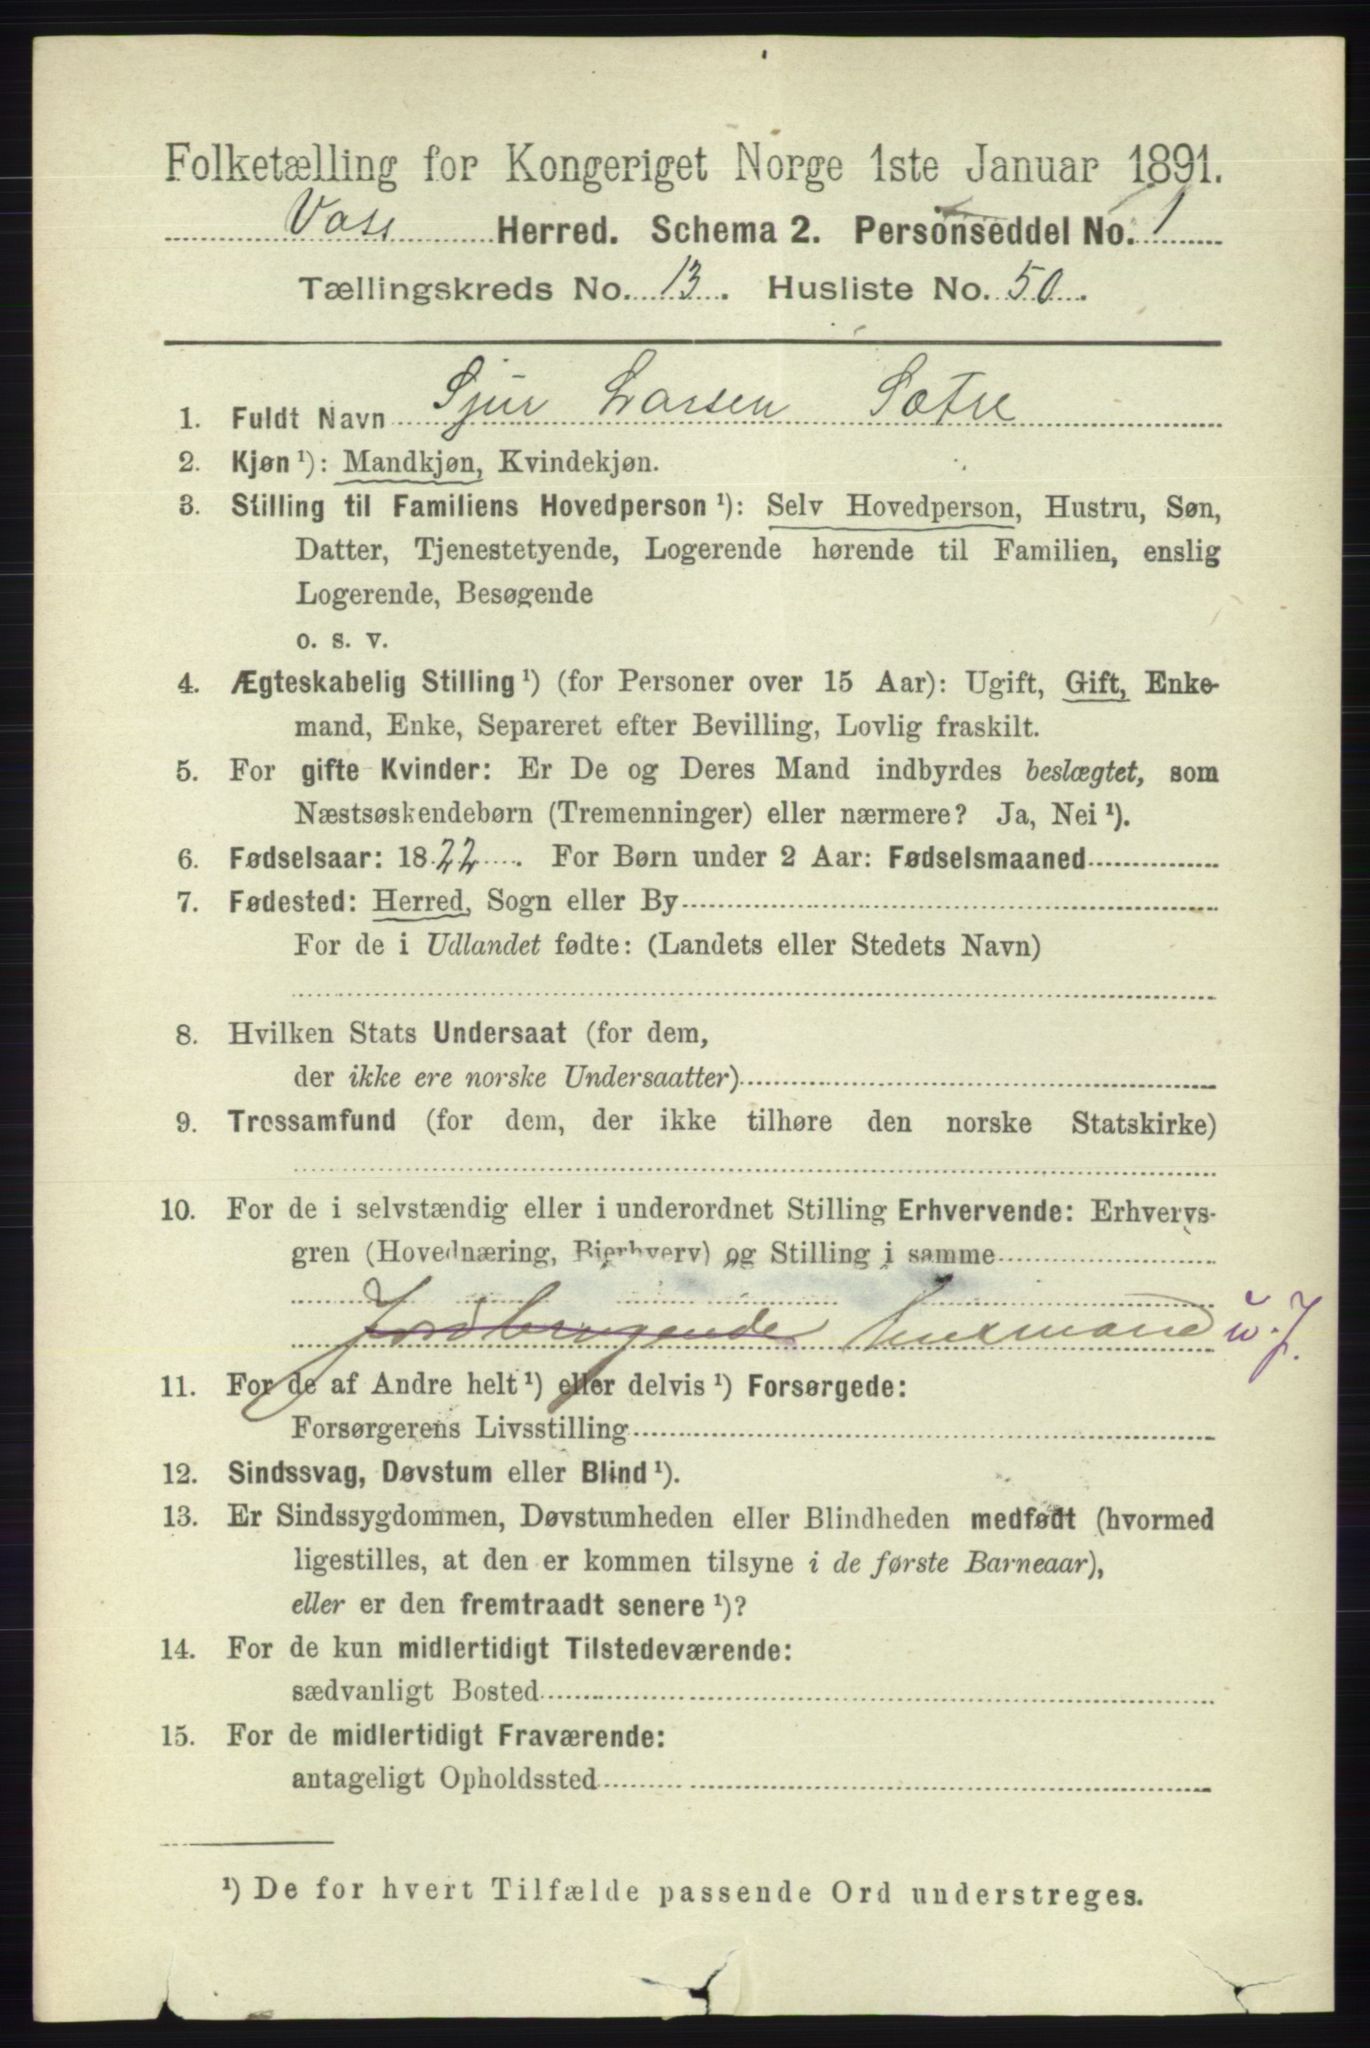 Folketælling for Kongeriget Norge 1ste Januar 1891.
Voss Herred. Schema 2. Personseddel No. 1
Tællingskreds No. 13. Husliste No. 50.
1. Fuldt Navn Sjur Larsen Sætre
2. Kjøn ¹): Mandkjøn, Kvindekjøn.
3. Stilling til Familiens Hovedperson ¹): Selv Hovedperson, Hustru, Søn,
Datter, Tjenestetyende, Logerende hørende til Familien, enslig
Logerende, Besøgende
o. s. v.
4. Ægteskabelig Stilling ¹) (for Personer over 15 Aar): Ugift, Gift, Enke-
mand, Enke, Separeret efter Bevilling, Lovlig fraskilt.
5. For gifte Kvinder: Er De og Deres Mand indbyrdes beslægtet, som
Næstsøskendebørn (Tremenninger) eller nærmere? Ja, Nei ¹).
6. Fødselsaar: 1822. For Børn under 2 Aar: Fødselsmaaned
7. Fødested: Herred, Sogn eller By
For de i Udlandet fødte: (Landets eller Stedets Navn)
8. Hvilken Stats Undersaat (for dem,
der ikke ere norske Undersaatter)
9. Trossamfund (for dem, der ikke tilhøre den norske Statskirke)
10. For de i selvstændig eller i underordnet Stilling Erhvervende: Erhvervs-
gren (Hovednæring, Bierhverv) og Stilling i samme
Jordbrugende Huusmand u. J.
11. For de af Andre helt ¹) eller delvis ¹) Forsørgede:
Forsørgerens Livsstilling
12. Sindssvag, Døvstum eller Blind ¹).
13. Er Sindssygdommen, Døvstumheden eller Blindheden medfødt (hvormed
ligestilles, at den er kommen tilsyne i de første Barneaar),
eller er den fremtraadt senere ¹)?
14. For de kun midlertidigt Tilstedeværende:
sædvanligt Bosted
15. For de midlertidigt Fraværende:
antageligt Opholdssted
¹) De for hvert Tilfælde passende Ord understreges.